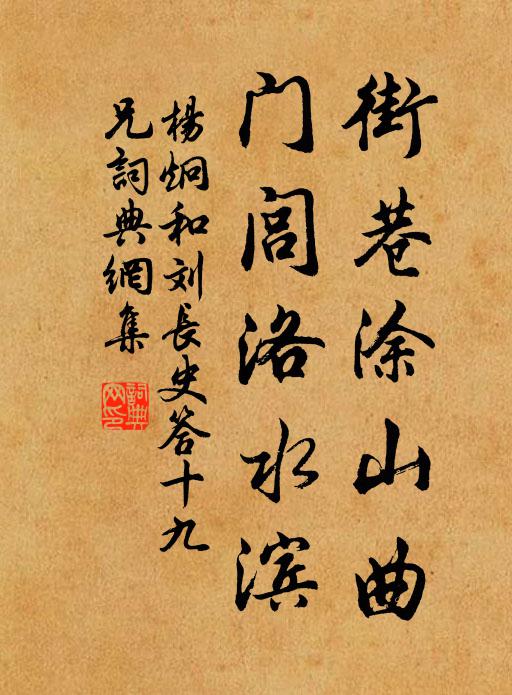 街巷涂山曲
门闾洛水滨
杨炯和刘長史答十九
兄詞典網集
詞典
网印